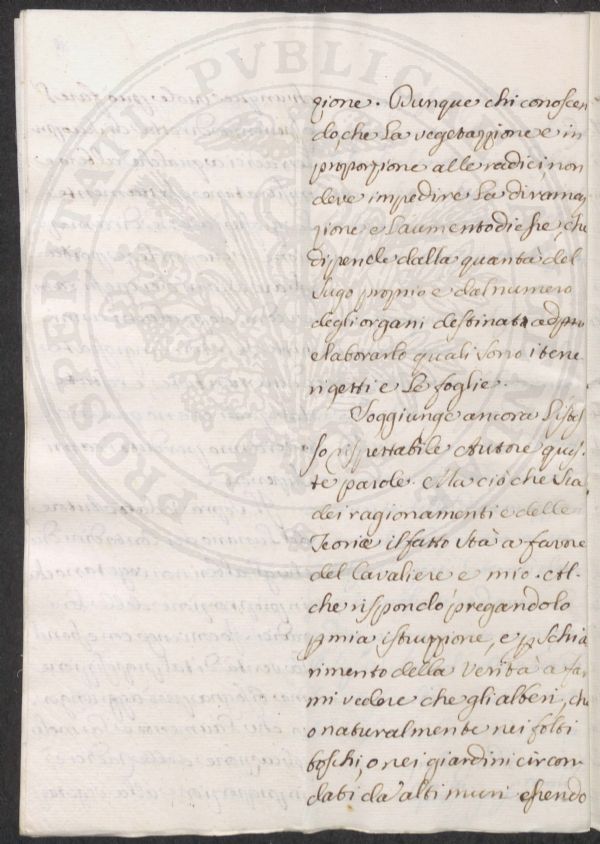 zione. Dunque chi conoscen
do, che la vegetazzione e in
proporzione alle radici non
deve impedire la dirama
zione e l'aumento di esse, che
dipende dalla quantà del
sugo proprio e dal numero
degli organi destinati ad
elaborarlo quali sono i tene
ri getti e le foglie.
Soggiunge ancora l'istes
so rispettabile Autore ques
te parole. Ma ciò che sia
dei ragionamenti e delle
Teorie il fatto stà a favore
del Cavaliere e mio. Al
che rispondo pregandolo
p mia istruzzione, e p schia
rimento della verità a far
mi vedere che gli alberi, che
o naturalmente nei folti
boschi, o nei giardini circon
dati da alti muri essendo
PROSPERITATI PUBLICAE